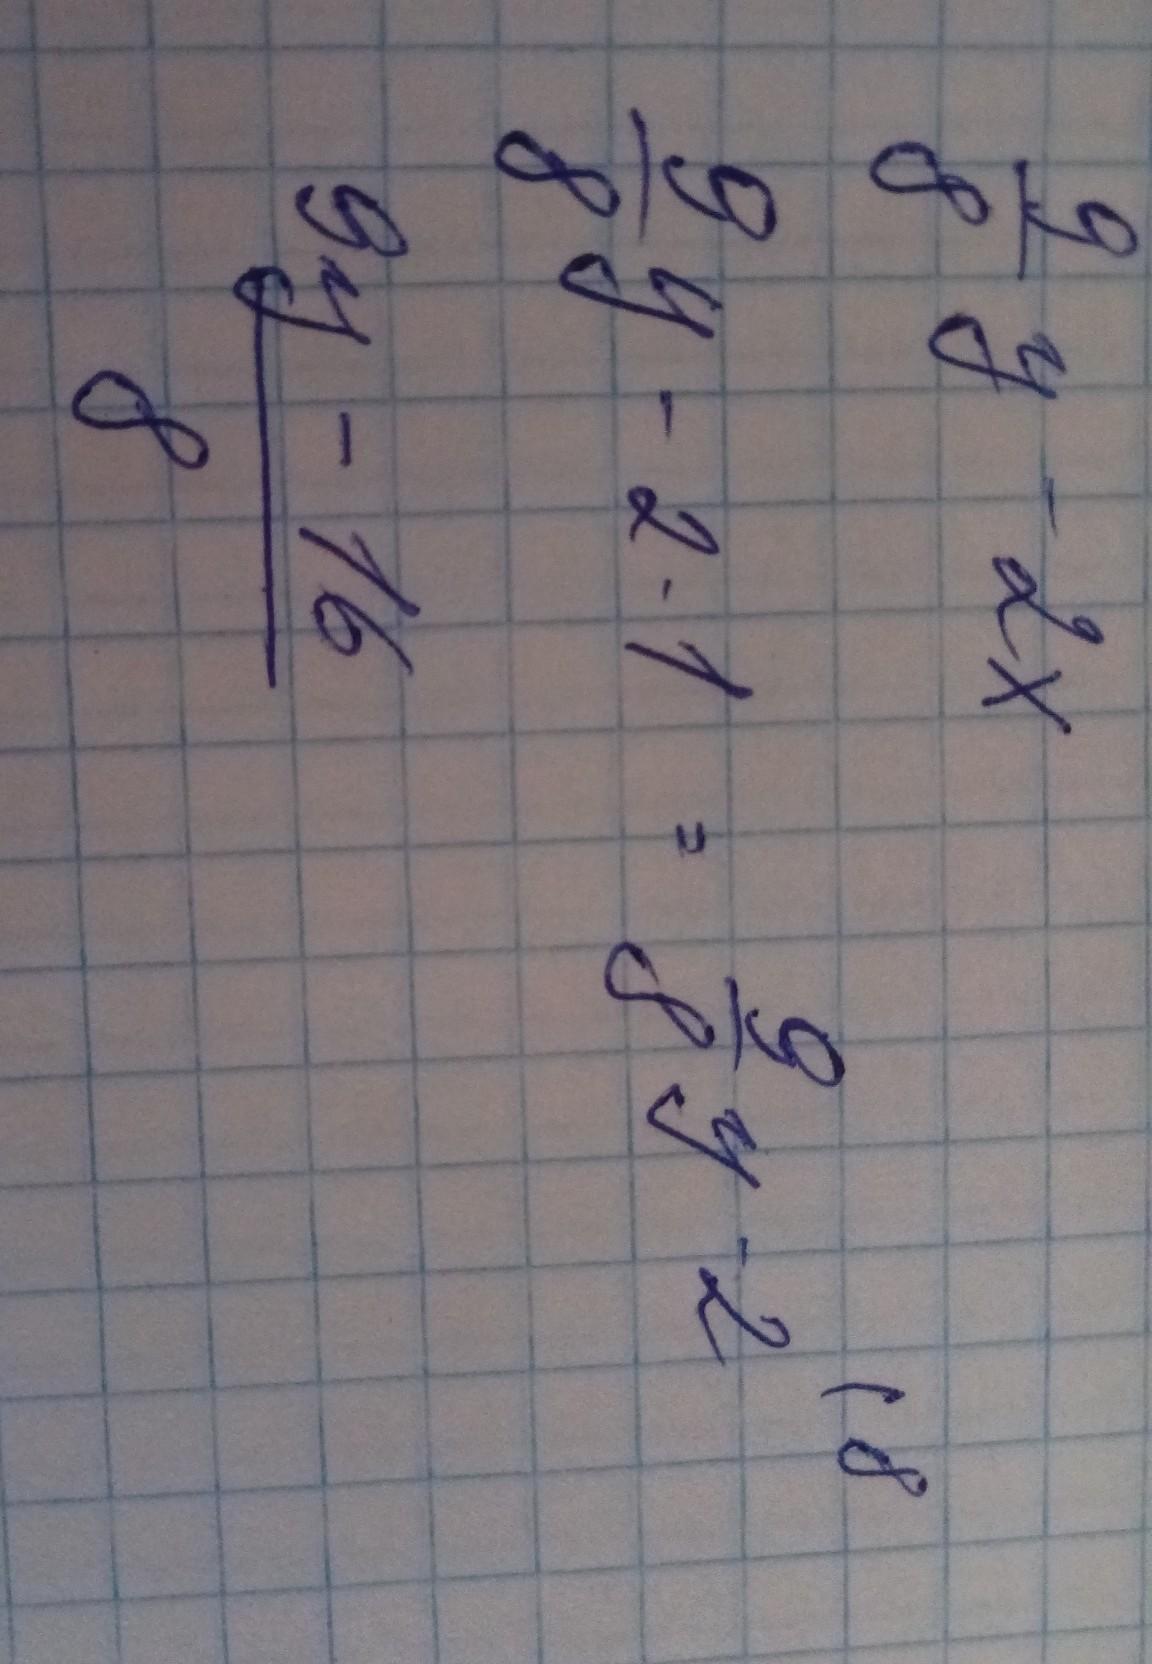 9/8 y - 2x
9/8 y - 2 · 1 = 9/8 y - 2 \8
9y - 16 / 8